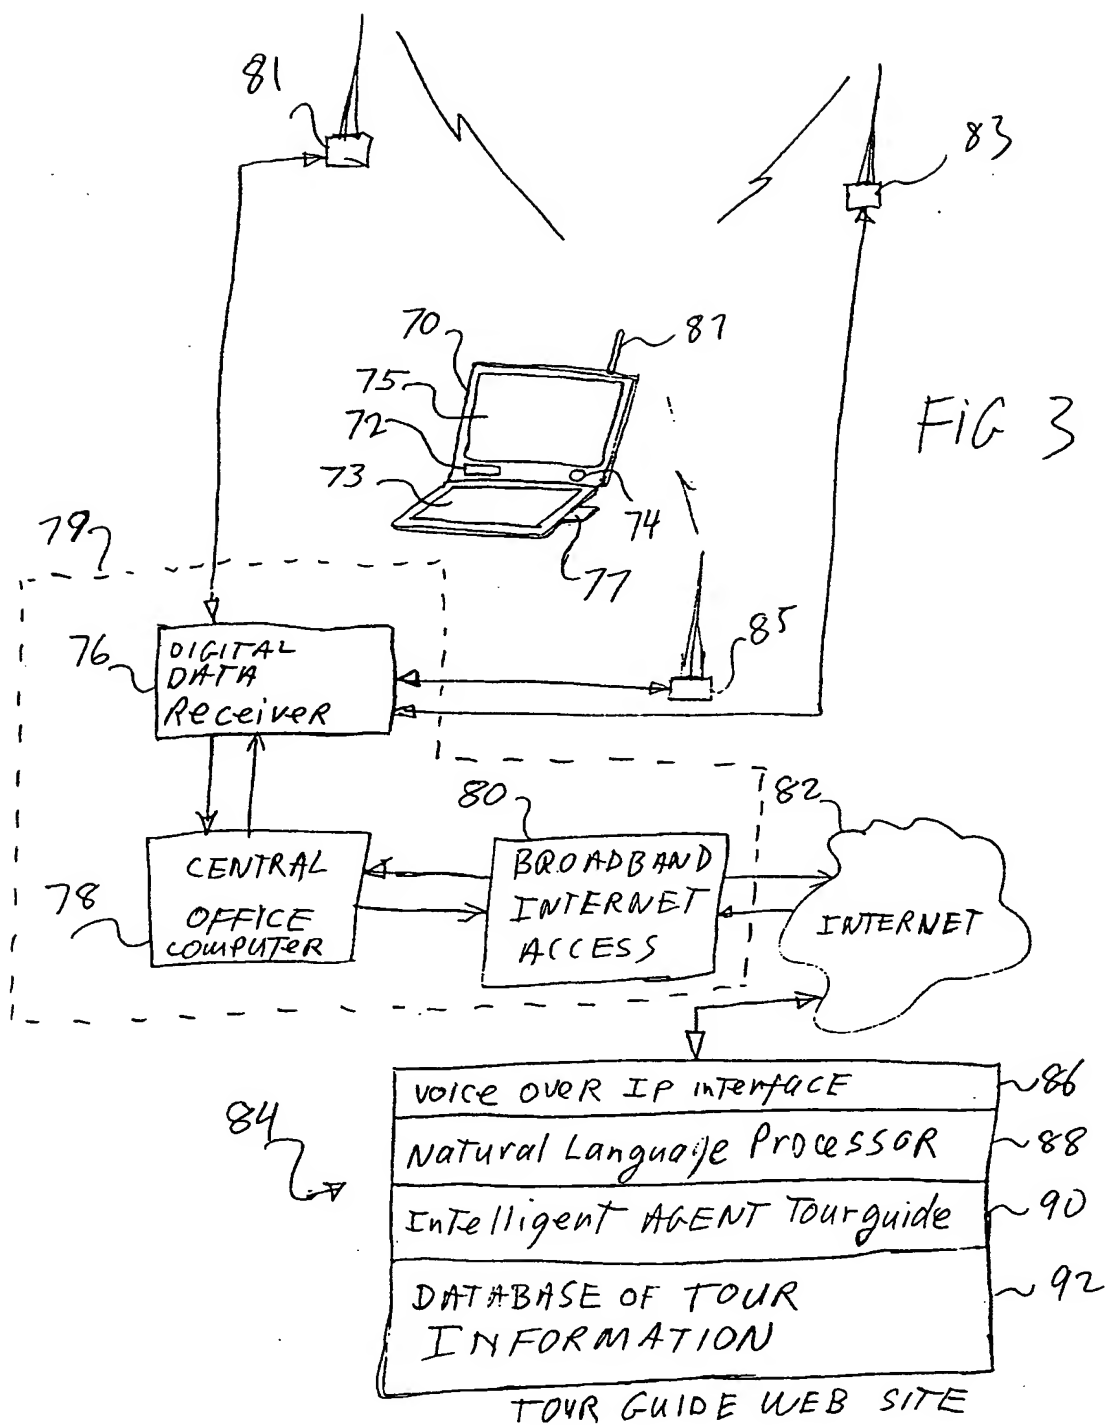 81
83
70
87
75
72
73
74
77
FiG 3
79
76
DIGITAL
DATA
Receiver
85
80
82
78
CENTRAL
OFFICE
COMPUTER
BROADBAND
INTERNET
ACCESS
INTERNET
84
VOICE OVER IP interface
86
Natural Language Processor
88
Intelligent AGENT Tourguide
90
DATABASE OF TOUR
INFORMATION
92
TOUR GUIDE WEB SITE